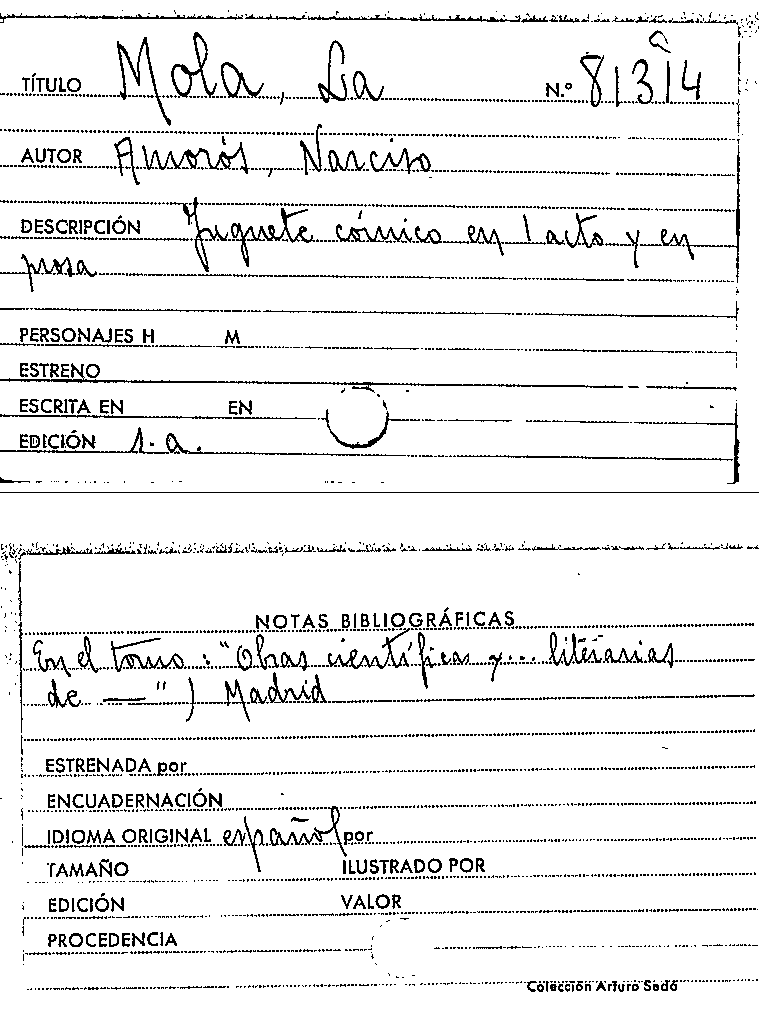 TÍTULO Mola, La N.º 81314
AUTOR Amorós, Narciso
DESCRIPCIÓN Juguete cómico en 1 acto y en
prosa
PERSONAJES H M
ESTRENO
ESCRITA EN EN
EDICIÓN 1.a.
NOTAS BIBLIOGRÁFICAS
En el tomo: "Obras científicas y... literarias
de —") Madrid
ESTRENADA por
ENCUADERNACIÓN
IDIOMA ORIGINAL español por
TAMAÑO ILUSTRADO POR
EDICIÓN VALOR
PROCEDENCIA
Colección Arturo Sedó